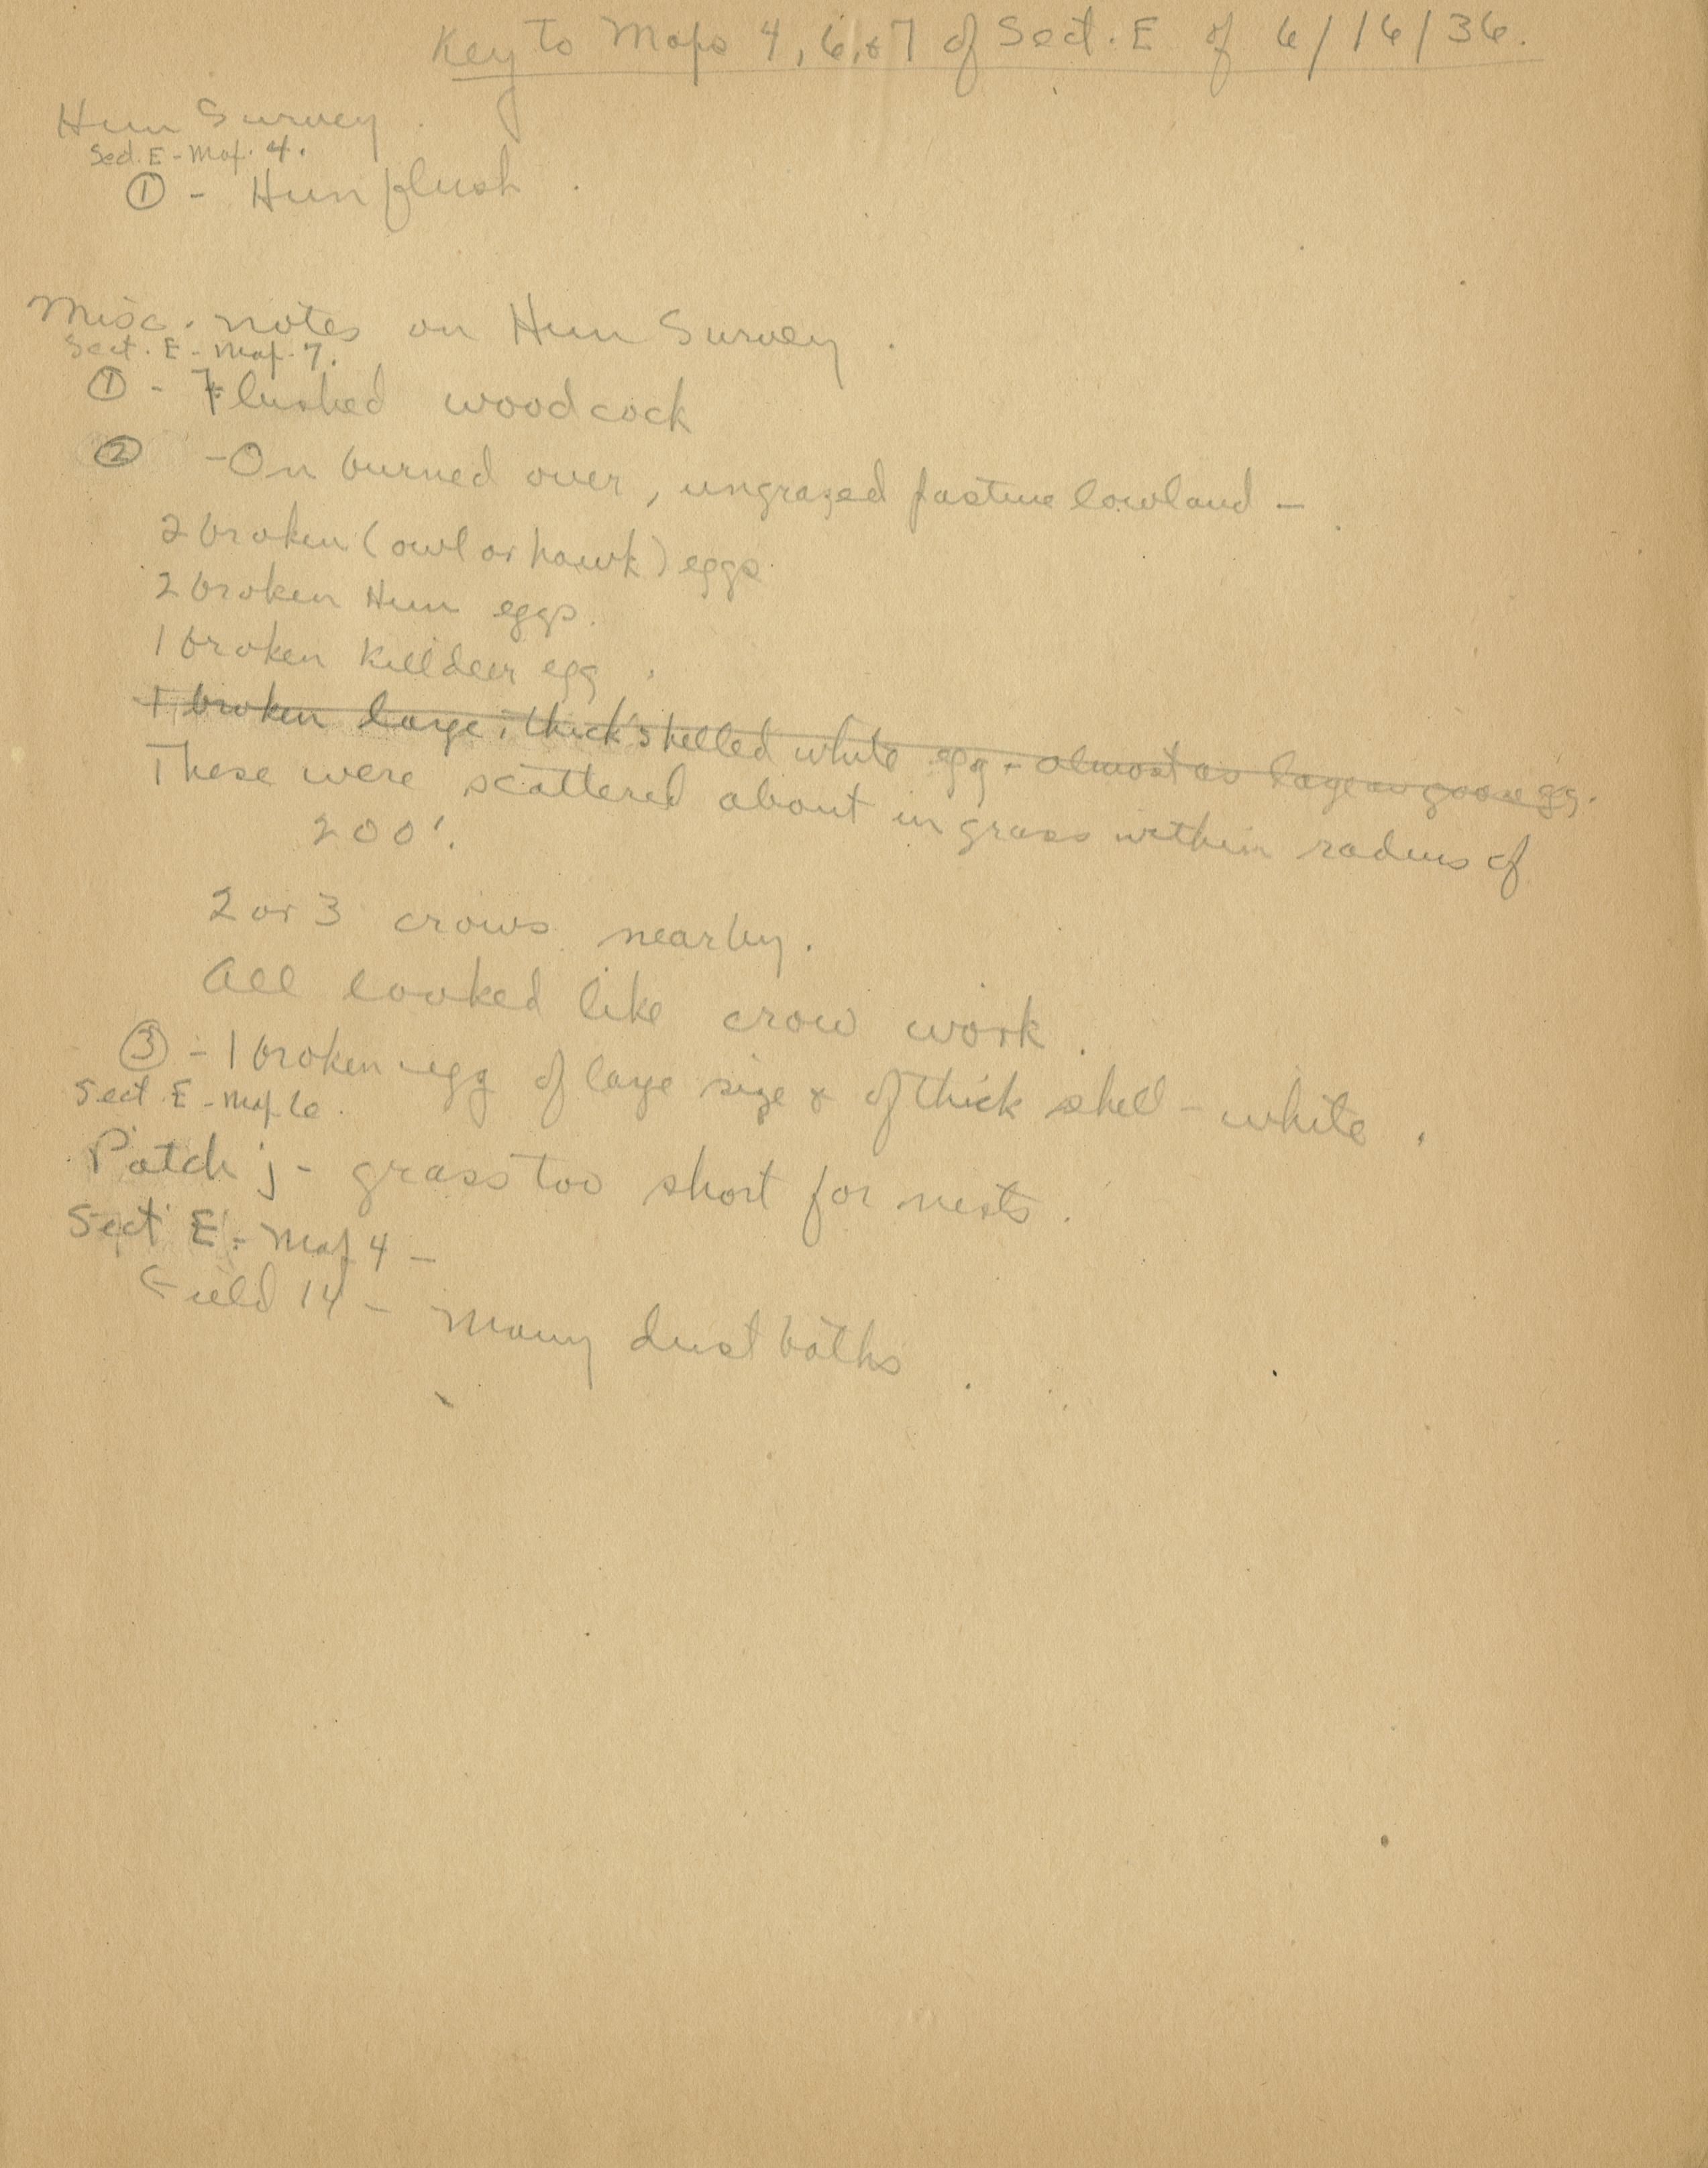 Key to Maps 4, 6, & 7 of Sect. E of 6/16/36.
Hun Survey.
Sect. E - Map. 4.
① - Hun flush.
Misc. notes on Hun Survey.
Sect. E - Map. 7.
① - Flushed woodcock
② - On burned over, ungrazed pasture lowland -
2 broken (owl or hawk) eggs.
2 broken Hun eggs.
1 broken Killdeer egg.
1 broken large, thick shelled white egg - almost as large as goose egg.
These were scattered about in grass within radius of
200'.
2 or 3 crows nearby.
All looked like crow work.
③ - 1 broken egg of large size & of thick shell - white.
Sect. E - Map. 6.
Patch j - grass too short for nests.
Sect E - Map 4 -
Field 14 - Many dust baths.